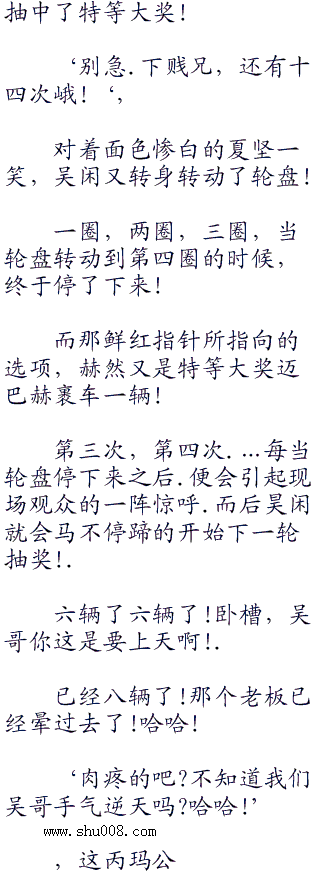 抽中了特等大奖!
‘别急.下贱兄，还有十
四次峨！‘，
对着面色惨白的夏坚一
笑，吴闲又转身转动了轮盘!
一圈，两圈，三圈，当
轮盘转动到第四圈的时候，
终于停了下来!
而那鲜红指针所指向的
选项，赫然又是特等大奖迈
巴赫裹车一辆!
第三次，第四次. …每当
轮盘停下来之后.便会引起现
场观众的一阵惊呼.而后昊闲
就会马不停蹄的开始下一轮
抽奖!.
六辆了六辆了!卧槽，吴
哥你这是要上天啊!.
已经八辆了!那个老板已
经晕过去了!哈哈!
‘肉疼的吧?不知道我们
吴哥手气逆天吗?哈哈!’
www.shu008.com
，这丙玛公